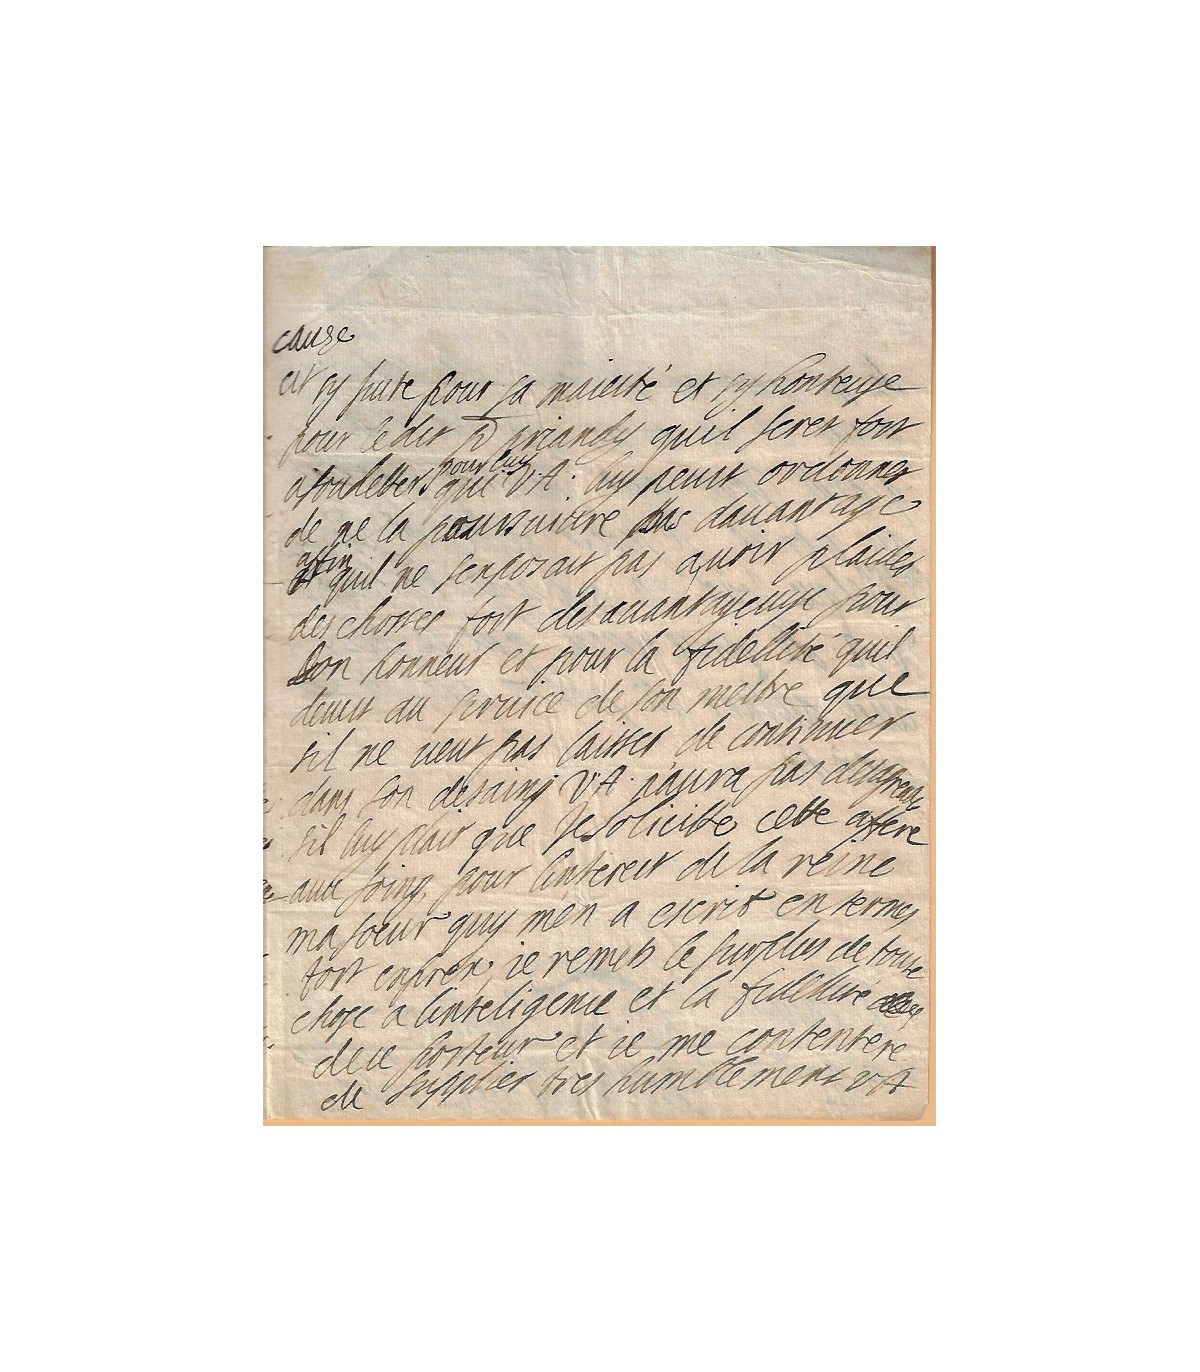 cause
est sy juste pour sa maiesté et sy honteuse
pour le dit quil seret fort
a souhetter pour luy que V.A. luy peust ordonner
de ne la poursuivre pas dauantage
affin quil ne sexposait pas a voir plaider
des chosses fort desauantageuse pour
son honneur et pour la fidellité quil
devet au servise de son mestre que
sil ne veut pas laisser de continuer
dans son desaing V.A. naura pas desagreable
sil luy plait que Je solicitte cette affere
aux soing pour linterest de la reine
ma soeur quy men a escrit en termes
fort expres ie remets le surplus de toute
chose a linteligense et la fidellité
de ce porteur et ie me contentere
de supplier tres humblement V A